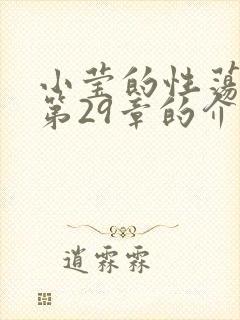 小莹的性荡
第29章的介
逍霖霖